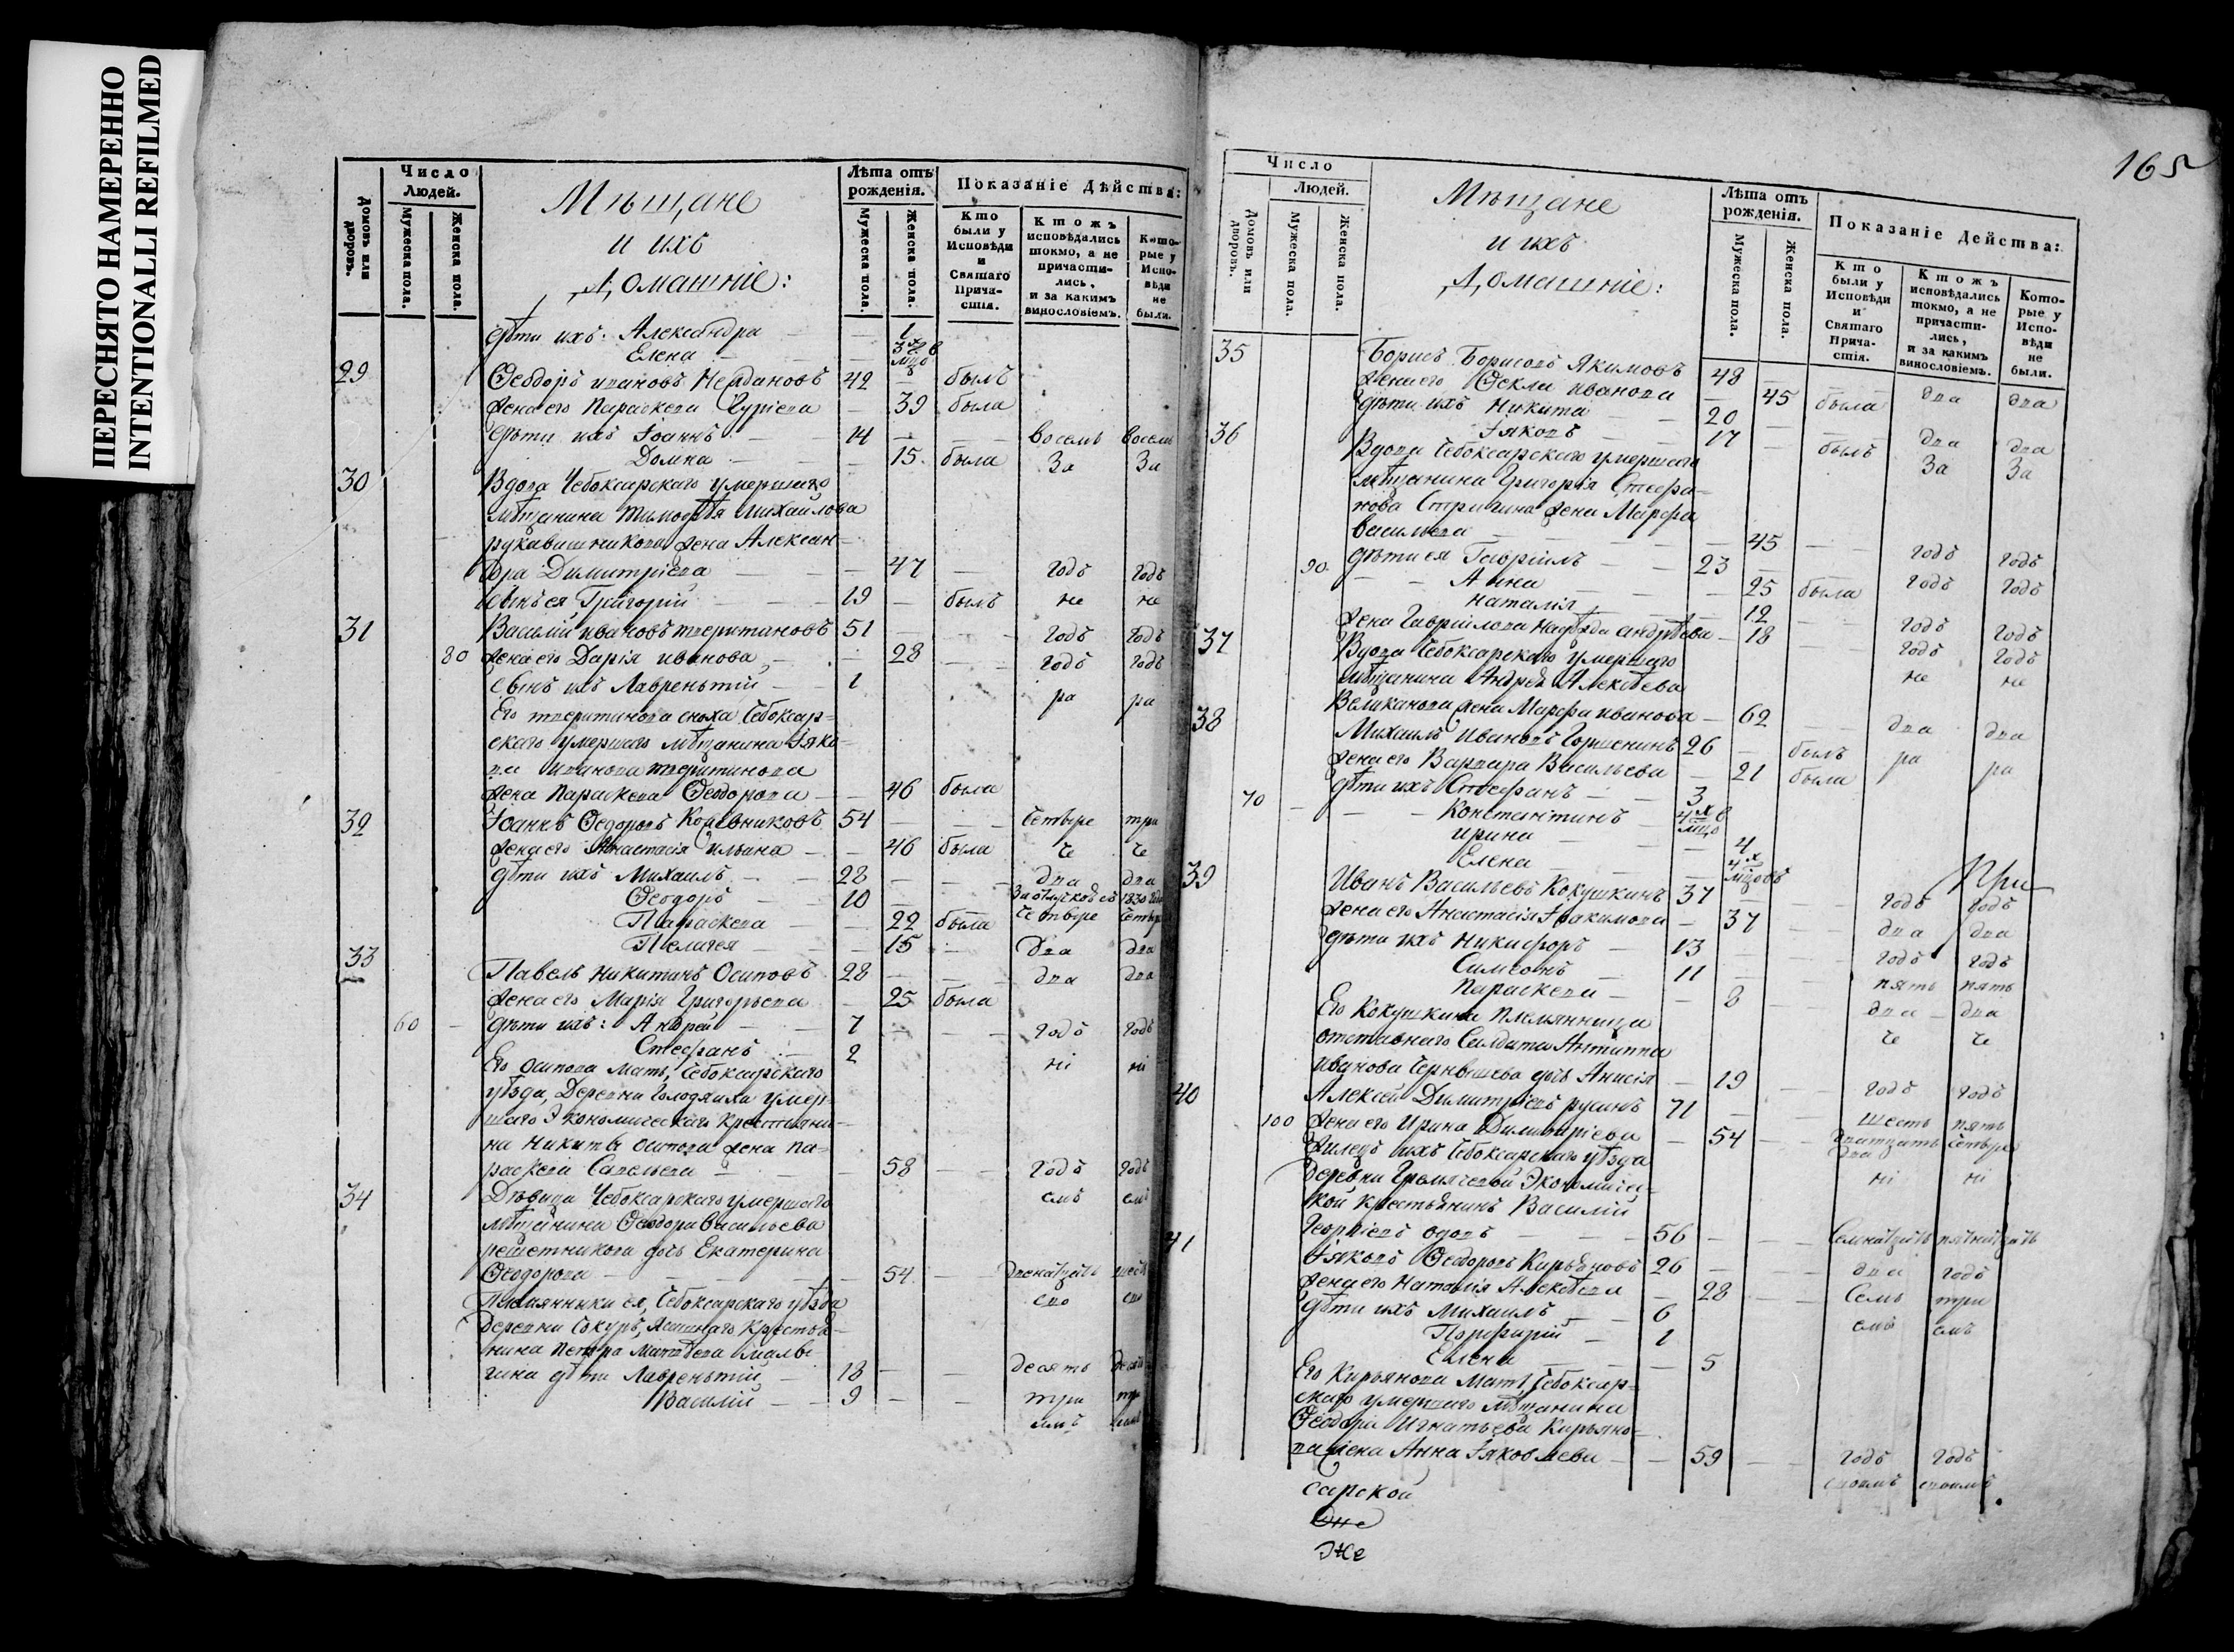 ПЕРЕСНЯТО НАМЕРЕННО
INTENTIONALLI REFILMED
Число Людей.
Домовъ или дворовъ.
Мужеска пола.
Женска пола.
Мѣщане
и ихъ
Домашніе:
Лѣта отъ рожденія.
Мужеска пола.
Женска пола.
Показаніе Дѣйства:
Кто были у Исповѣди и Святаго Причастія.
Ктожъ исповѣдались токмо, а не причастились, и за какимъ винословіемъ.
Которые у Исповѣди не были.
дѣти ихъ: Александра — 1
Елена — 3х мцовъ
29 Ѳеодоръ Ивановъ 42 — былъ
жена его Параскева Гуріева — 39 была
дѣти ихъ Іоаннъ — 14 — восемь восемь
Домна — 15 была За За
30 Вдова Чебоксарскаго умершаго
мѣщанина Тимоѳѣя Михайлова
рукавишникова жена Алексан-
дра Димитріева — 47 — годъ годъ
сынъ ея Григорій — 19 — былъ не не
31 Василій Ивановъ 51 — годъ годъ
80 жена его Дарія Иванова — 28 — годъ годъ
сынъ ихъ Лаврентій — 1 ра ра
Его сноха Чебоксар-
скаго умершаго мѣщанина Іяко-
ва Иванова
жена Параскева Ѳеодорова — 46 была
32 Іоаннъ Ѳеодоровъ Кожевниковъ 54 — четыре три
жена его Анастасія Ильина — 46 была че че
дѣти ихъ Михаилъ — 28 — два два
Ѳеодоръ — 10 — 1830 года
Параскева — 22 была четыре четыре
Пелагея — 15 — два два
33 Павелъ Никитинъ Осиповъ 28 — два два
жена его Марія Григорьева — 25 была
60 — дѣти ихъ: Андрей — 7 — годъ годъ
Стефанъ — 2 ні ні
Его Осипова мать, Чебоксарскаго
уѣзда, Деревни умер-
шаго Экономическаго крестьяни-
на Никиты Осипова жена Па-
раскева Савельева — 58 — годъ годъ
34 Дѣвица Чебоксарскаго умершаго смъ смъ
мѣщанина Ѳеодора Васильева
решетникова дочь Екатерина
Ѳеодорова — 54 — двенатцать шесть
Племянники ея, Чебоксарскаго уѣзда сво сво
Деревни Крестья-
нина Петра Матвѣева
гина дѣти Лаврентій — 18 — десять десять
Василій — 9 — три три
165
Число
Людей.
Домовъ или дворовъ.
Мужеска пола.
Женска пола.
Мѣщане
и ихъ
Домашніе:
Лѣта отъ рожденія.
Мужеска пола.
Женска пола.
Показаніе Действа:
Кто были у Исповѣди и Святаго Причастія.
Ктожъ исповѣдались токмо, а не причастились, и за какимъ винословіемъ.
Которые у Исповѣди не были.
35 Борисъ Борисовъ Якимовъ 48 — два два
жена его Ѳекла Иванова — 45 была
дѣти ихъ Никита — 20 — два два
Іяковъ — 17 — былъ За За
36 Вдова Чебоксарскаго умершаго
мѣщанина Григорія Стефа-
нова Стригина жена Марфа
Васильева — 45 — годъ годъ
90 дѣти ея Гавріилъ — 23 — годъ годъ
— — Анна — 25 была
Наталія — 12 — годъ годъ
жена Гавріилова Надежда Андрѣева — 18 годъ годъ
37 Вдова Чебоксарскаго умершаго не не
мѣщанина Андрея Алексѣева
Великанова жена Марфа Иванова — 62 — два два
38 Михаилъ Ивановъ Горшенинъ 26 — былъ ра ра
жена его Варвара Васильева — 21 была
дѣти ихъ Стефанъ — 3
70 — Константинъ — 4х мцовъ
Ирина — 4
Елена — 4х мцовъ
39 Иванъ Васильевъ Кокушкинъ 37 — годъ годъ
жена его Анастасія Іоакимова — 37 — два два
дѣти ихъ Никифоръ — 13 — годъ годъ
Симеонъ — 11 — пять пять
Параскева — 8 два — два
Его Кокушкина племянница че че
отставнаго Солдата Антиппа
Иванова Чернышева дочь Анисія — 19 — годъ годъ
40 Алексей Димитріевъ русинъ 71 — шесть пять
100 жена его Ирина Димитріева — 54 — дватцать два четыре
Жилецъ ихъ Чебоксарскаго уѣзда ні ні
деревни Гремячевой Экономичес-
кой крестьянинъ Василій
Георгіевъ вдовъ — 56 — семнатцать пятнатцать
41 Іяковъ Ѳеодоровъ Кирьяновъ 26 — два годъ
жена его Наталія Алексѣева — 28 — семь три
дѣти ихъ Михаилъ — 6 смъ смъ
Порфирій — 1
Елена — 5
Его Кирьянова мать, Чебоксар-
скаго умершаго мѣщанина
Ѳеодора Игнатьева Кирьяно-
ва жена Анна Іяковлева — 59 — годъ годъ
При
сарской
Же